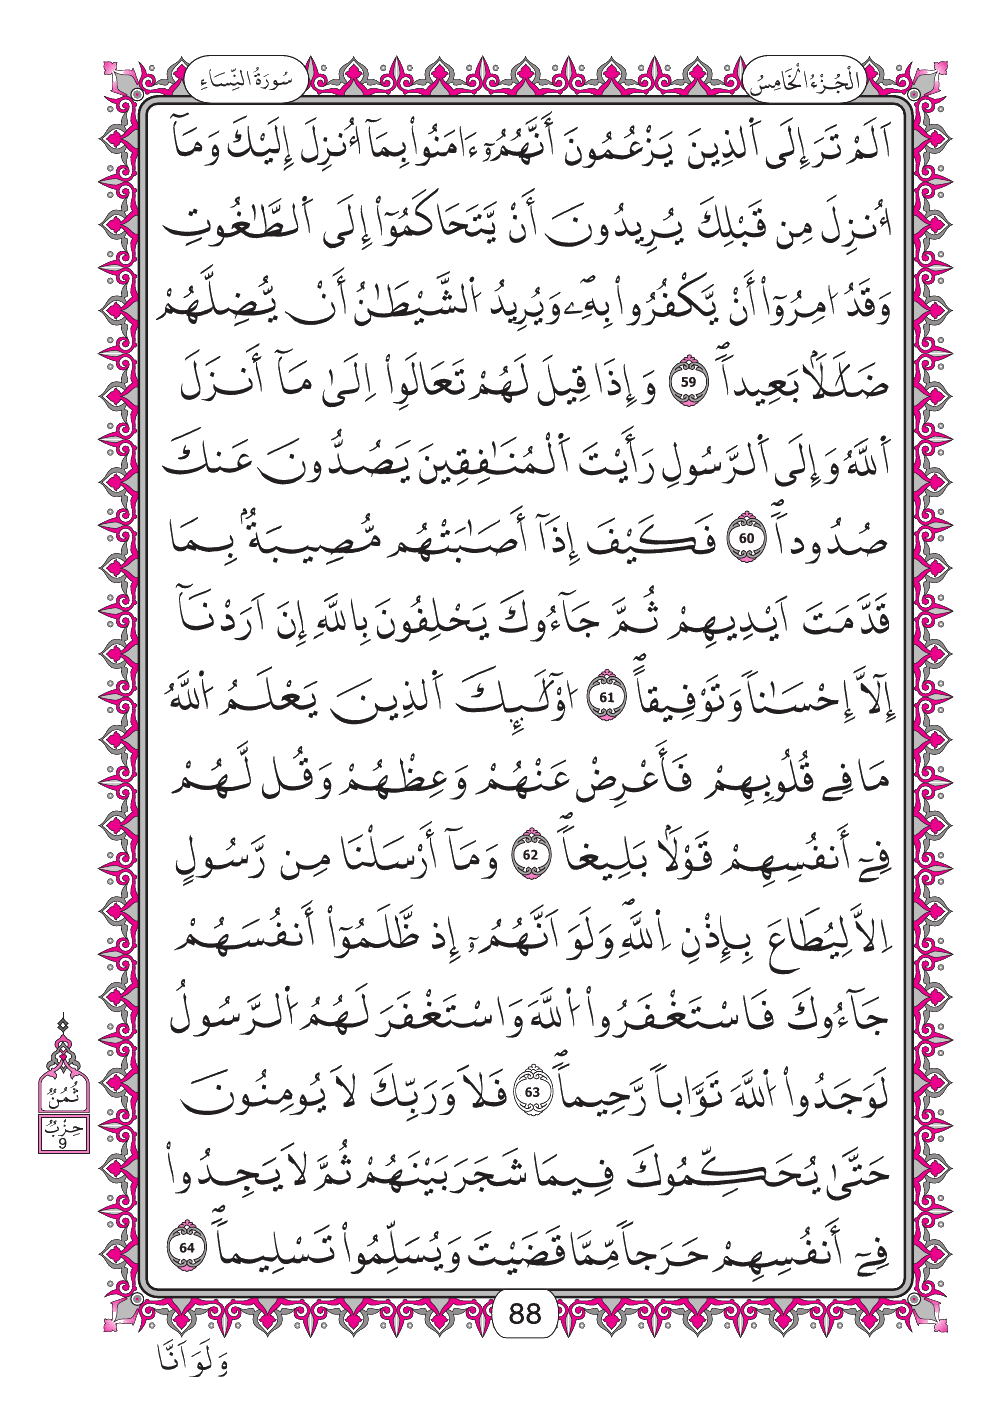 الْجُزْءُ الْخَامِسُ
سُورَةُ النِّسَاءِ
اَلَمْ تَرَ إِلَى اَ۬لذِينَ يَزْعُمُونَ أَنَّهُمُۥٓ ءَامَنُواْ بِمَآ أُنزِلَ إِلَيْكَ وَمَآ
أُنزِلَ مِن قَبْلِكَ يُرِيدُونَ أَنْ يَّتَحَاكَمُوٓاْ إِلَى اَ۬لطَّٰغُوتِ
وَقَدُ ا۟مِرُوٓاْ أَنْ يَّكْفُرُواْ بِهِۦۖ وَيُرِيدُ اُ۬لشَّيْطَٰنُ أَنْ يُّضِلَّهُمْ
ضَلَٰلَاۢ بَعِيداٗۖ 59 وَإِذَا قِيلَ لَهُمْ تَعَالَوِاْ اِلَىٰ مَآ أَنزَلَ
اَ۬للَّهُ وَإِلَى اَ۬لرَّسُولِ رَأَيْتَ اَ۬لْمُنَٰفِقِينَ يَصُدُّونَ عَنكَ
صُدُوداٗۖ 60 فَكَيْفَ إِذَآ أَصَٰبَتْهُم مُّصِيبَةُۢ بِمَا
قَدَّمَتَ اَيْدِيهِمْ ثُمَّ جَآءُوكَ يَحْلِفُونَ بِاللَّهِ إِنَ اَرَدْنَآ
إِلَّآ إِحْسَٰناٗ وَتَوْفِيقاًۖ 61 ا۟وْلَٰٓئِكَ اَ۬لذِينَ يَعْلَمُ اُ۬للَّهُ
مَا فِے قُلُوبِهِمْ فَأَعْرِضْ عَنْهُمْ وَعِظْهُمْ وَقُل لَّهُمْ
فِےٓ أَنفُسِهِمْ قَوْلَاۢ بَلِيغاٗۖ 62 وَمَآ أَرْسَلْنَا مِن رَّسُولٍ
اِلَّا لِيُطَاعَ بِإِذْنِ اِ۬للَّهِۖ وَلَوَ اَنَّهُمُۥٓ إِذ ظَّلَمُوٓاْ أَنفُسَهُمْ
جَآءُوكَ فَاسْتَغْفَرُواْ اُ۬للَّهَ وَاسْتَغْفَرَ لَهُمُ اُ۬لرَّسُولُ
لَوَجَدُواْ اُ۬للَّهَ تَوَّاباٗ رَّحِيماٗۖ 63 فَلَا وَرَبِّكَ لَا يُومِنُونَ
حَتَّىٰ يُحَكِّمُوكَ فِيمَا شَجَرَ بَيْنَهُمْ ثُمَّ لَا يَجِدُواْ
فِےٓ أَنفُسِهِمْ حَرَجاٗ مِّمَّا قَضَيْتَ وَيُسَلِّمُواْ تَسْلِيماٗۖ 64
ثُمُنٌ
حِزْبٌ
9
88
وَلَوَ اَنَّا